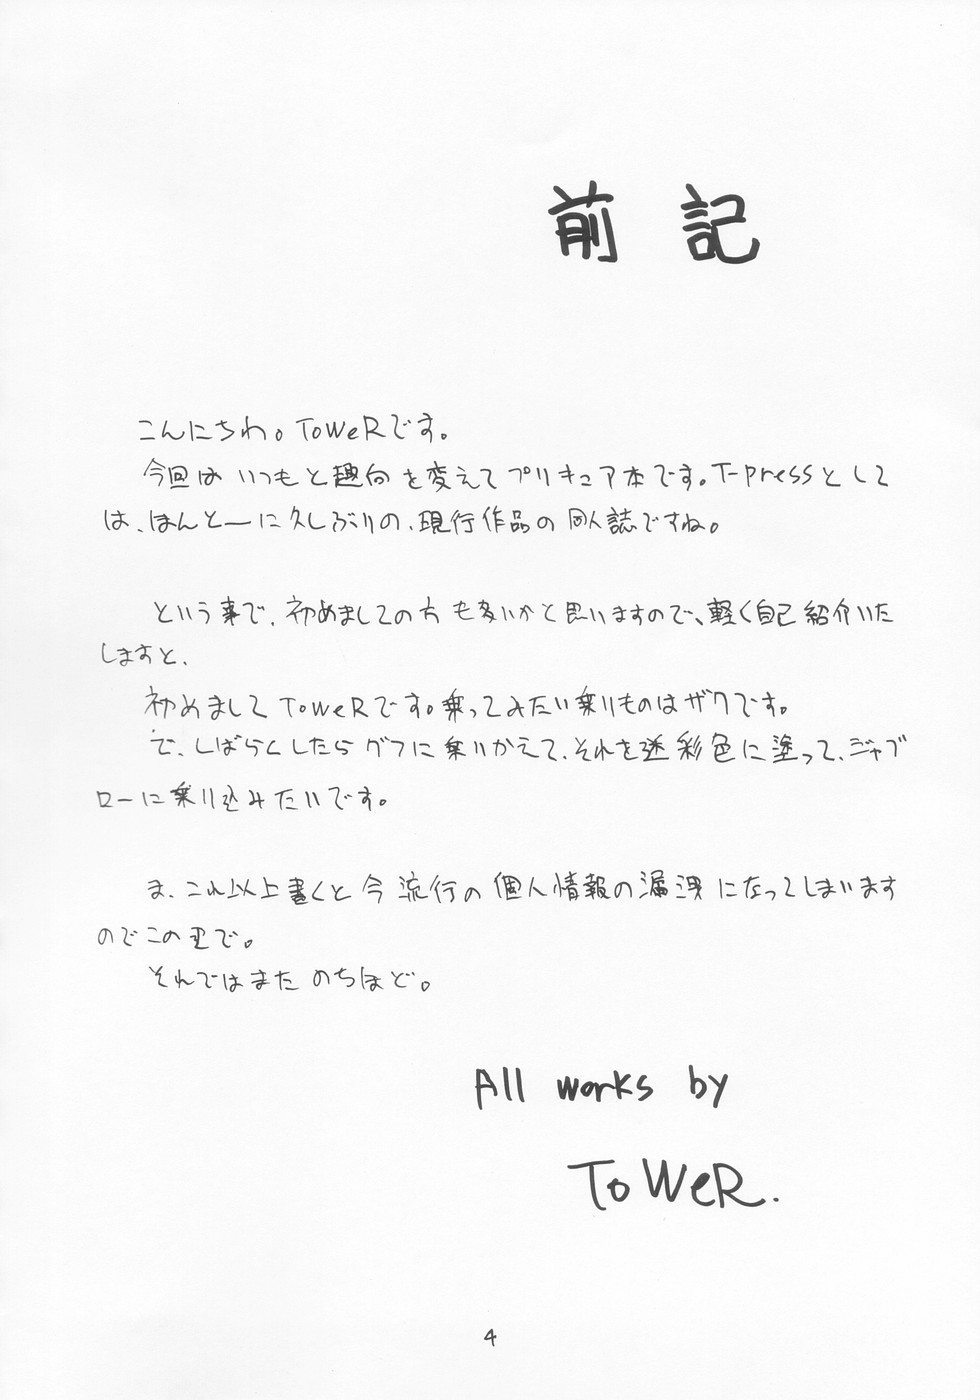 前記
こんにちわ。ToWeRです。
今回はいつもと趣向を変えてプリキュア本です。T-pressとして
は、ほんとーに久しぶりの、現行作品の同人誌ですね。
という事で、初めましての方も多いかと思いますので、軽く自己紹介いた
しますと、
初めましてToWeRです。乗ってみたい乗りものはザクです。
で、しばらくしたらグフに乗りかえて、それを迷彩色に塗って、ジャブ
ローに乗り込みたいです。
ま、これ以上書くと今流行の個人情報の漏洩になってしまいます
のでこの辺で。
それではまたのちほど。
All works by
ToWeR.
4